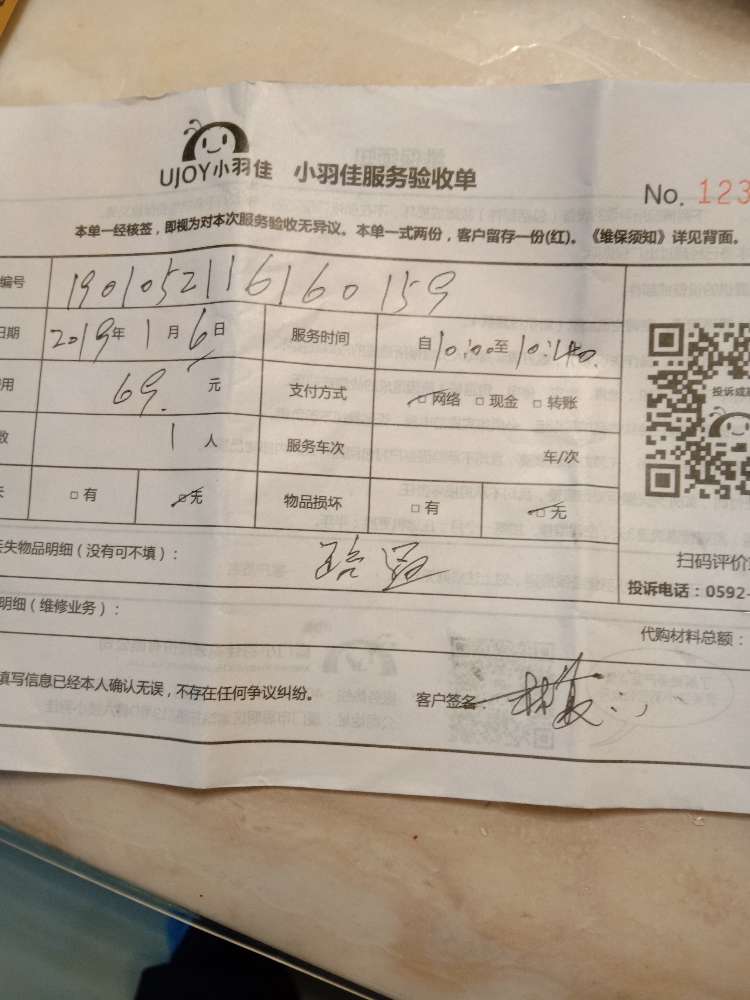 UJOY小羽佳 小羽佳服务验收单
No. 123
本单一经核签，即视为对本次服务验收无异议。本单一式两份，客户留存一份(红)。《维保须知》详见背面。
编号 1901052116160159
日期 2019年 1月 6日 服务时间 自10:00至10:40.
用 69. 元 支付方式 □网络 □现金 □转账
数 1人 服务车次 车/次
□有 □无 物品损坏 □有 □无
投诉或
丢失物品明细（没有可不填）：
扫码评价
投诉电话：0592-
明细（维修业务）：
代购材料总额：
填写信息已经本人确认无误，不存在任何争议纠纷。 客户签名：